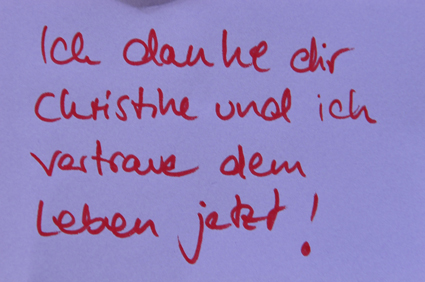 Ich danke dir
Christine und ich
vertraue dem
Leben jetzt!